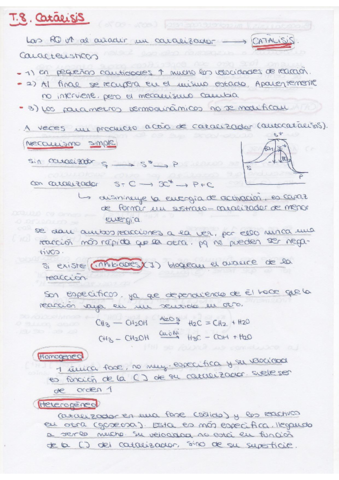 T.8. Catálisis
Las RQ v↑ al añadir un catalizador → CATÁLISIS
Características
- 1) en pequeñas cantidades ↑ mucho las velocidades de reacción
- 2) Al final se recupera en el mismo estado. Aparentemente
no interviene, pero el mecanismo cambia.
- 3) Los parámetros termodinámicos no se modifican
A veces un producto actúa de catalizador (autocatálisis).
Mecanismo simple
sin catalizador S → S* → P
con catalizador S-C → → P-C
↳ disminuye la energía de activación, es capaz
de formar un sistema-catalizador de menor
energía
se dan ambas reacciones a la vez, por eso nunca una
reacción más rápida que la otra, pq no pueden ser nega-
tivos.
Si existe INHIBIDORES (I) bloquean el avance de la
reacción.
Son específicos, ya que dependiendo de él hace que la
reacción vaya en un sentido u otro.
CH3 — CH2OH → H2C = CH2 + H2O
CH3 — CH2OH → H3C - COH + H2O
Homogénea
1 única fase, no muy específica y su velocidad
es función de la [ ] de su catalizador. Suele ser
de orden 1
Heterogénea
catalizador en una fase (sólido) y los reactivos
en otra (gaseosa). Esta es más específica, llegando
a serlo mucho. Su velocidad no está en función
de la [ ] del catalizador, sino de su superficie.